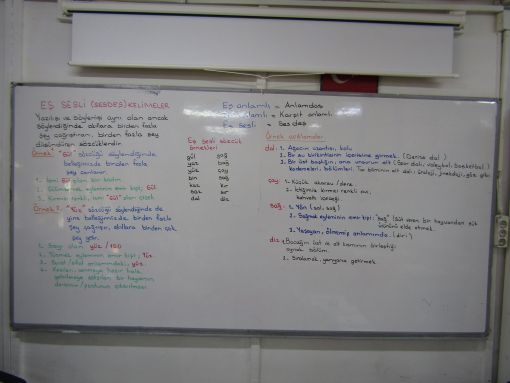 EŞ SESLİ (SESDEŞ) KELİMELER
Yazılışı ve söylenişi aynı olan ancak
söylendiğinde akıllara birden fazla
şey çağrıştıran, birden fazla şey
düşündüren sözcüklerdir.
Örnek: "Gül" sözcüğü söylendiğinde
belleğimizde birden fazla
şey canlanır.
1. İsmi gül olan bir bayan.
2. Gülümsemek eyleminin emir kipi; Gül
3. Kırmızı renkli, ismi "Gül" olan çiçek
Örnek 2: "Yüz" sözcüğü söylendiğinde de
yine belleğimizde, birden fazla
şey çağrışır, akıllara birden çok
şey gelir.
1. Sayı olan yüz / 100
2. Yüzmek eyleminin emir kipi; Yüz
3. Surat / sıfat anlamındaki; yüz
4. Kesilen, yenmeye hazır hale
getirilmeye çalışılan bir hayvanın
derisinin / postunun çıkarılması
Eş anlamlı = Anlamdaş
Zıt anlamlı = Karşıt anlamlı
Eş sesli = Sesdeş
Eş sesli sözcük
örnekleri
gül sağ
yaz bağ
yüz çay
bin saç
kaz kır
saz sır
dal diz
Örnek açıklamalar
dal: 1. Ağacın uzantısı, kolu
2. Bir su birikintisinin içerisine girmek. (Denize dal)
3. Bir üst başlığın, ana unsurun alt (Spor dalı; voleybol, basketbol)
kademeleri, bölümleri. Tıp biliminin alt dalı; üroloji, jinekoloji, göz gibi
çay: 1. Küçük akarsu / dere.
2. İçtiğimiz kırmızı renkli sıvı,
kahvaltı içeceği
Sağ: 1. Yön (sol-sağ)
2. Sağmak eyleminin emir kipi; "sağ" (Süt veren bir hayvandan süt
ürününü elde etmek.
3. Yaşayan, ölmemiş anlamında. (diri)
diz: 1. Bacağın üst ile alt kısmının birleştiği
oynak bölüm.
2. Sıralamak, yanyana getirmek